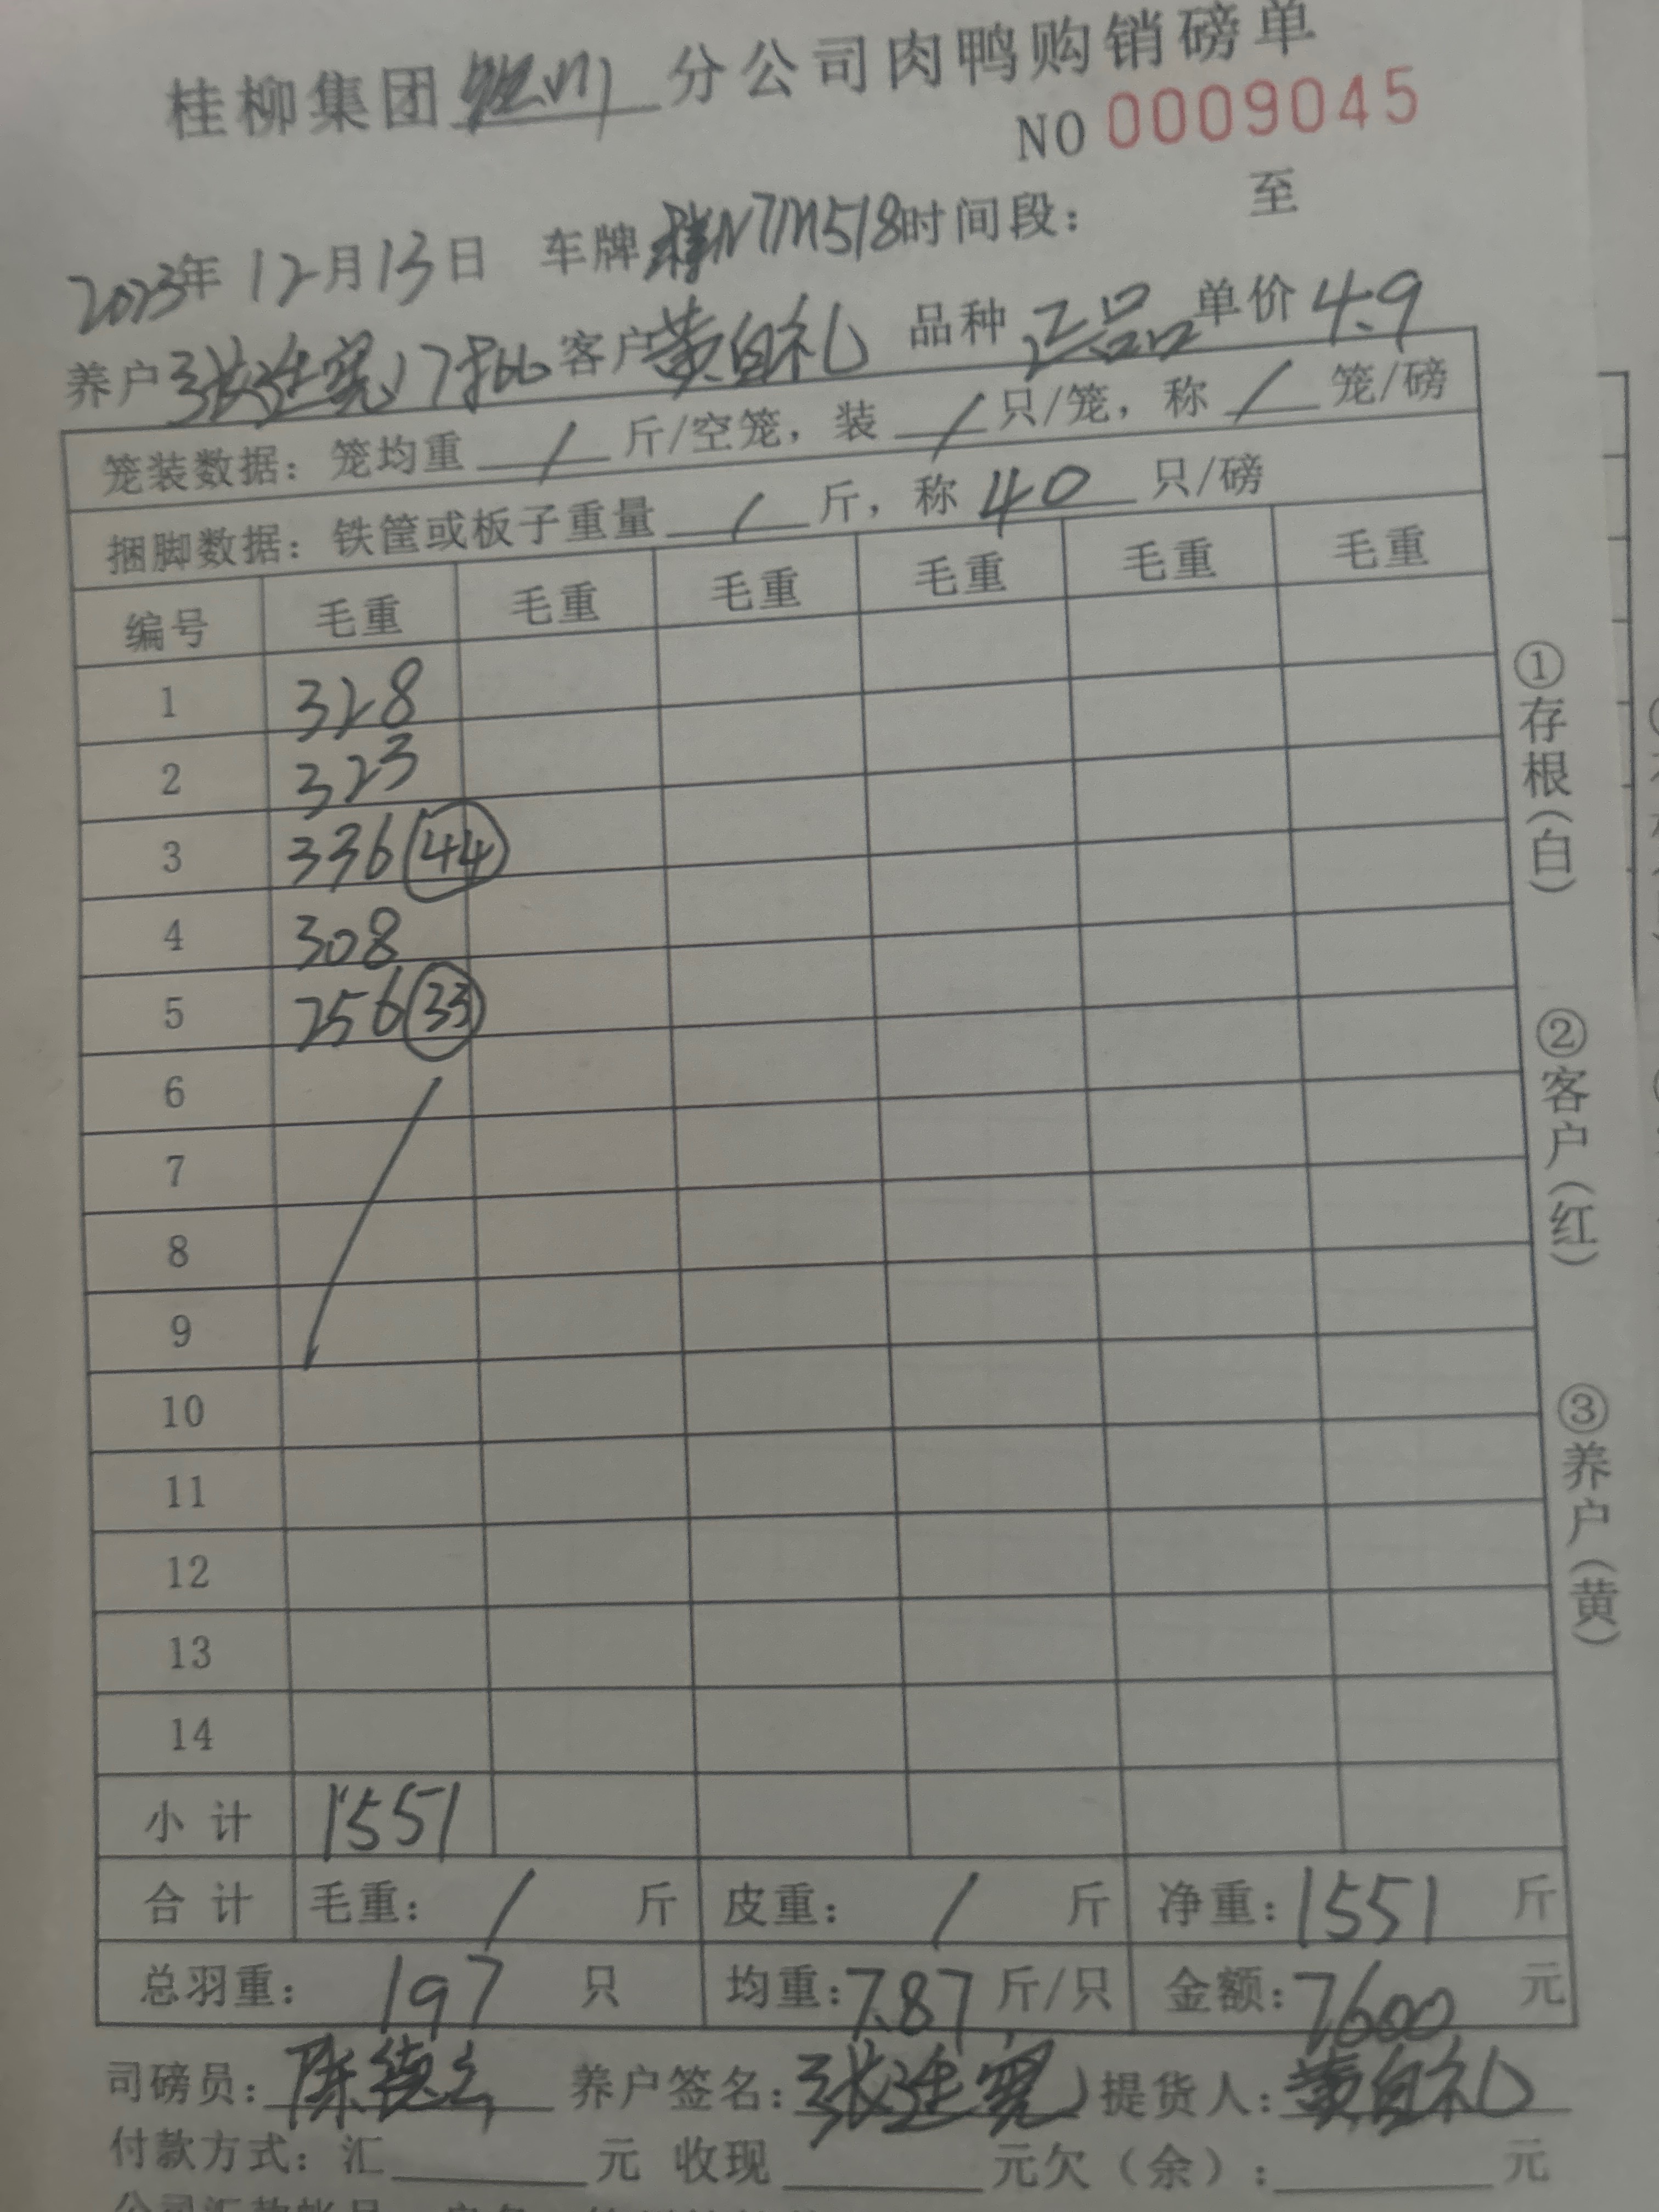 桂柳集团 分公司肉鸭购销磅单
NO 0009045
2023年12月13日 车牌 桂N7M518 时间段: 至
养户 张连宽 17批 客户 黄自礼 品种 正品 单价 4.9
笼装数据: 笼均重 / 斤/空笼, 装 / 只/笼, 称 / 笼/磅
捆脚数据: 铁筐或板子重量 / 斤, 称 40 只/磅
编号 毛重 毛重 毛重 毛重 毛重 毛重
1 328
2 323
3 336 (44)
4 308
5 256 (33)
6
7
8
9
10
11
12
13
14
小计 1551
合计 毛重: / 斤 皮重: / 斤 净重: 1551 斤
总羽重: 197 只 均重: 7.87 斤/只 金额: 7600 元
司磅员: 陈德 养户签名: 张连宽 提货人: 黄自礼
付款方式: 汇 元 收现 元欠(余): 元
①存根(白)
②客户(红)
③养户(黄)